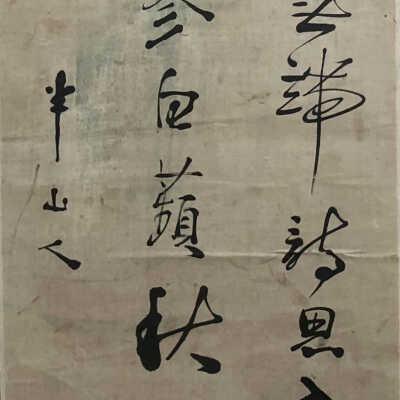 無端詩思
白蘋秋
半山人